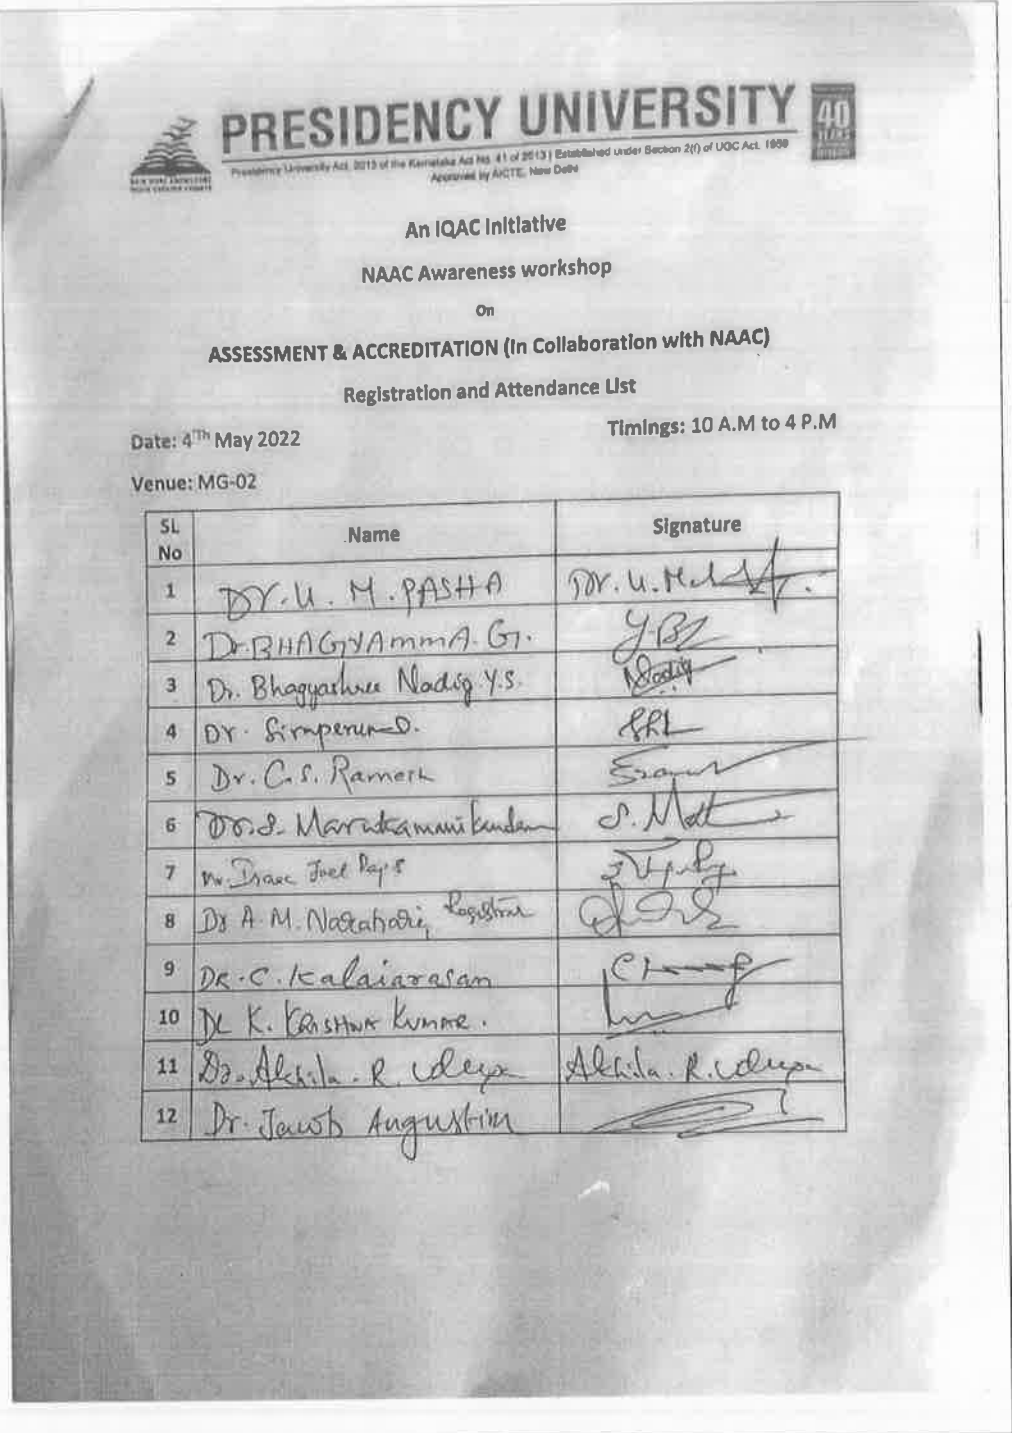 PRESIDENCY UNIVERSITY
40
YEARS
Presidency University Act, 2013 of the Karnataka Act No. 41 of 2013 | Established under Section 2(f) of UGC Act, 1956
Approved by AICTE, New Delhi
An IQAC Initiative
NAAC Awareness workshop
On
ASSESSMENT & ACCREDITATION (In Collaboration with NAAC)
Registration and Attendance List
Date: 4Th May 2022 Timings: 10 A.M to 4 P.M
Venue: MG-02
SL No Name Signature
1 Dr. U. M. PASHA Dr. U. M.
2 Dr. BHAGYAmmA. G.
3 Dr. Bhagyashree Nadig Y.S. Nadig
4 Dr.
5 Dr. C. S. Ramesh
6 S.
7 Mr. Isaac Joel Raj. S
8 Dr A. M. Narahari, Registrar
9 DR. C. Kalaiarasan
10 Dr K. KRISHNA KUMAR.
11 Dr. Akhila. R. Udupa Akhila. R. Udupa
12 Dr. Jacob Augustin